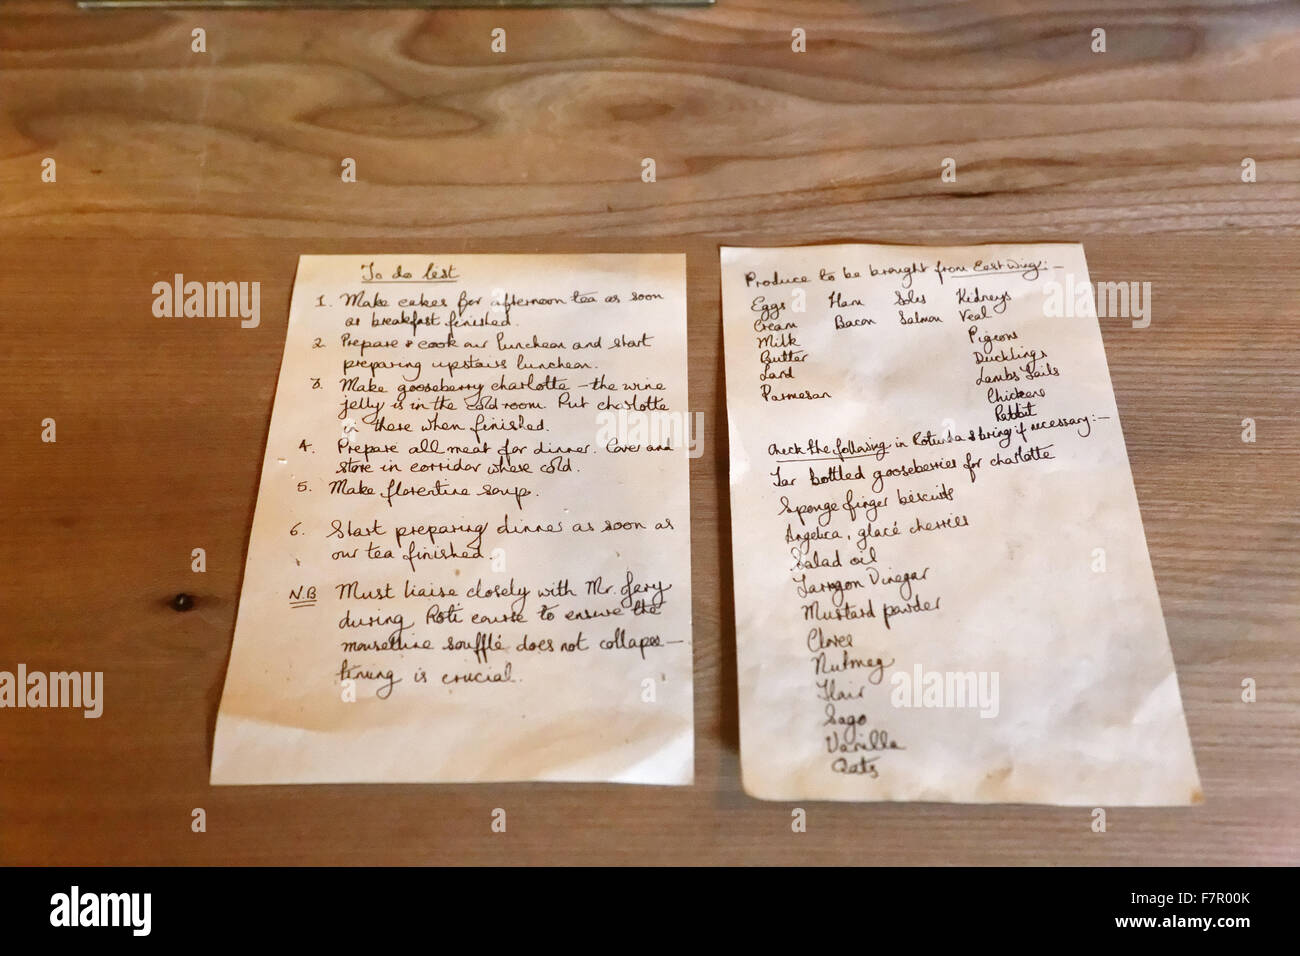 To do list
1. Make cakes for afternoon tea as soon
as breakfast finished.
2. Prepare & cook our luncheon and start
preparing upstairs luncheon.
3. Make gooseberry charlotte – the wine
jelly is in the cold room. Put charlotte
in there when finished.
4. Prepare all meat for dinner. Cover and
store in corridor where cold.
5. Make florentine soup.
6. Start preparing dinner as soon as
our tea finished.
N.B Must liaise closely with Mr.
during Roti course to ensure the
mousseline soufflé does not collapse –
timing is crucial.
Produce to be brought from East Wing:–
Eggs Ham Soles Kidneys
Cream Bacon Salmon Veal
Milk Pigeons
Butter Ducklings
Lard Lambs Tails
Parmesan Chickens
Rabbit
Check the following in Rotunda & bring if necessary:–
Jar bottled gooseberries for charlotte
Sponge finger biscuits
Angelica, glacé cherries
Salad oil
Tarragon Vinegar
Mustard powder
Cloves
Nutmeg
Sago
Vanilla
Oats
alamy
alamy stock photo
F7R00K
www.alamy.com